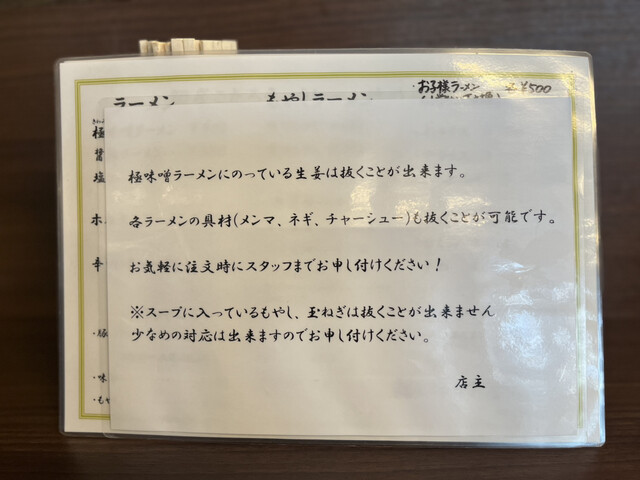 お子様ラーメン ¥500
ラーメン もやしラーメン
極
醤
塩
辛
極味噌ラーメンにのっている生姜は抜くことが出来ます。
各ラーメンの具材(メンマ、ネギ、チャーシュー)も抜くことが可能です。
お気軽に注文時にスタッフまでお申し付けください!
※スープに入っているもやし、玉ねぎは抜くことが出来ません
少なめの対応は出来ますのでお申し付けください。
店主
・豚
・味
・もや